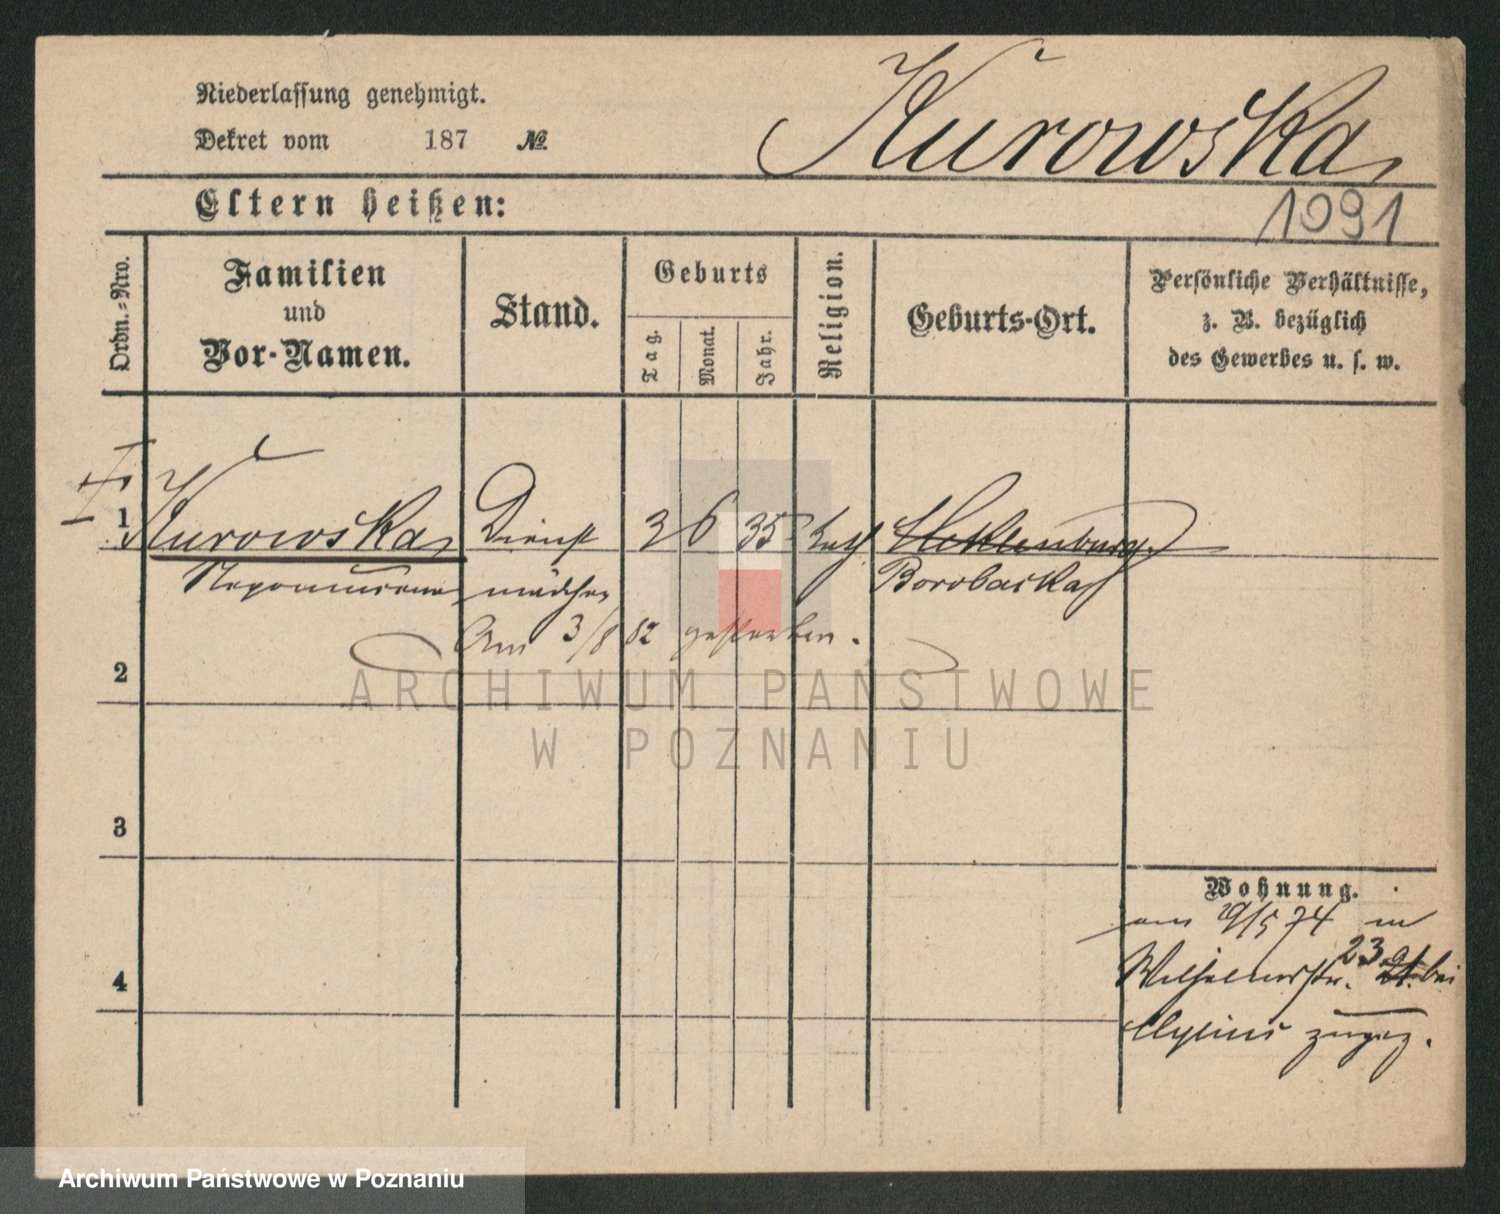 Niederlassung genehmigt.
Dekret vom 187 №
Kurowska
Eltern heißen:
1091
Ordn.-Nro.
Familien
und
Vor-Namen.
Stand.
Geburts
Tag.
Monat.
Jahr.
Religion.
Geburts-Ort.
Persönliche Verhältnisse,
z. B. bezüglich
des Gewerbes u. s. w.
1 Kurowska Dienst 3 6 35 kath
Nepomucena mädchen
Am 3/8 82 gestorben.
2
ARCHIWUM PAŃSTWOWE
W POZNANIU
3
Wohnung.
am 19/5 74 in
4 Wilhelmstr. 23 21. bei
Mylius zugez.
Archiwum Państwowe w Poznaniu